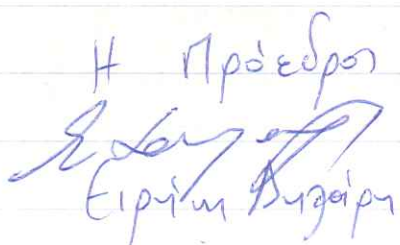 Η Πρόεδρος
Ειρήνη Βηλάρη